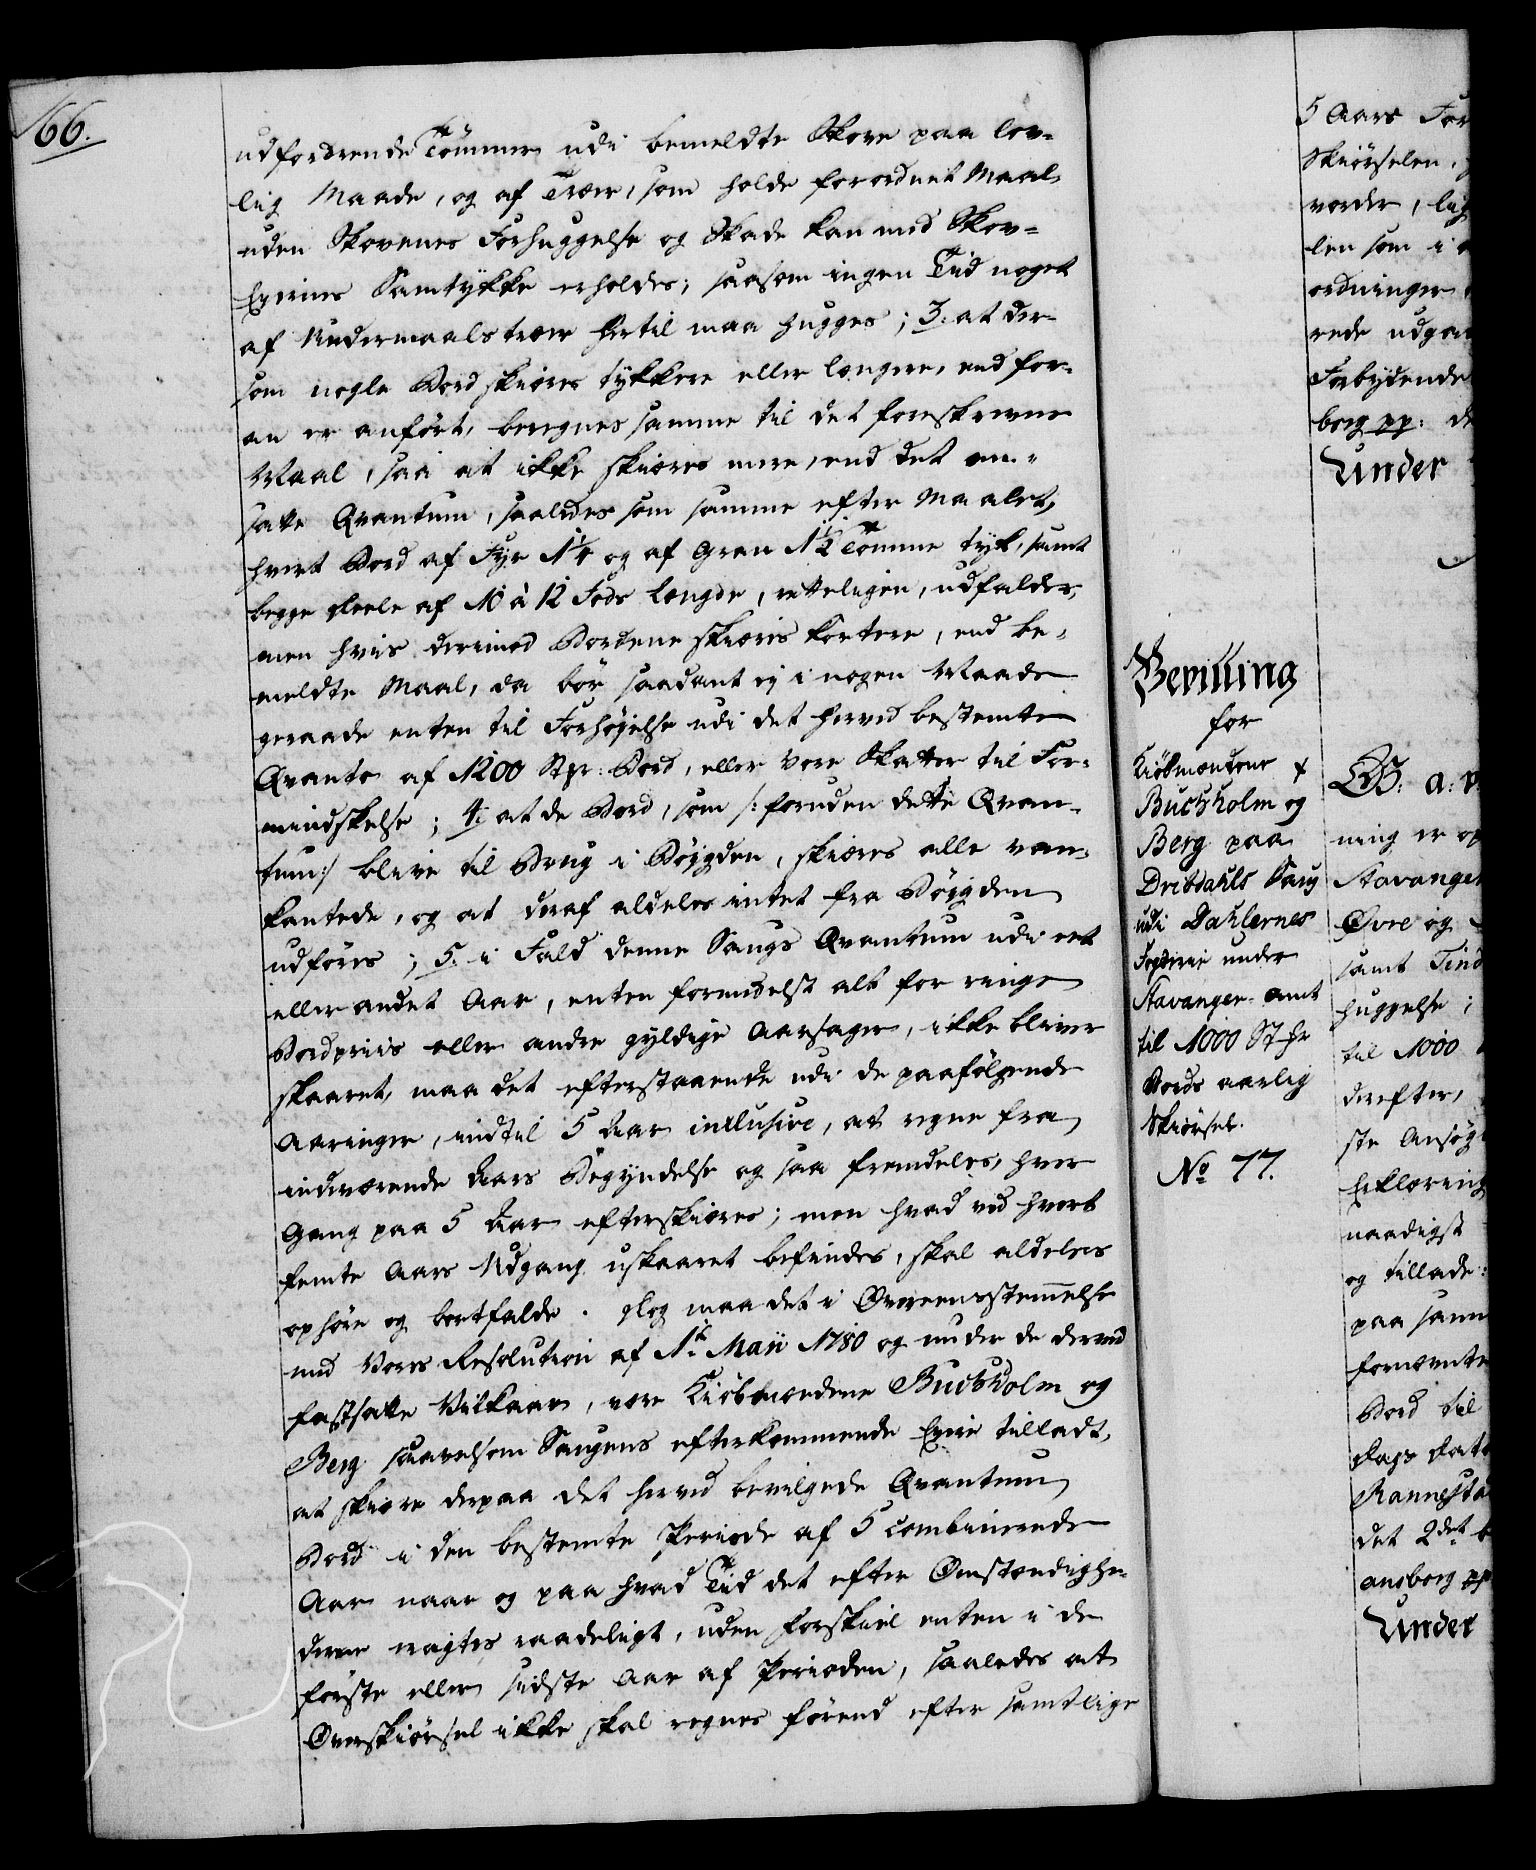 166.
udfordrende Tömmer udi bemeldte Skove paa lov-
lig Maade, og af Træer, som holde forordnet Maal,
uden Skovenes Forhuggelse og Skade kan med Skov-
Eyernes Samtykke erholdes; saasom ingen Tiid noget
af Undermaals træer hertil maa hugges; 3. at der-
som nogle Bord skiæres tykkere eller længere, end for-
an er anfört, beregnes samme til det foreskrevne
Maal, saa at ikke skiæres mere, end det an-
satte Qvantum, saaledes som samme efter Maalet,
hvert Bord af Fyr 1¼ og af Gran 1½ Tomme tyk, samt
begge Deele af 10 à 12 Fods Længde, retteligen, udfalder,
men hvis derimod Bordene skiæres kortere, end be-
meldte Maal, da bör saadant ej i nogen Maade
geraade enten til Forhøjelse udi det herved bestemte
Qvanto af 1200 Stkr: Bord, eller Vore Skatter til For-
mindskelse; 4. at de Bord, som /: foruden dette Qvan-
tum :/ blive til Brug i Bøjgden, skiæres alle van-
kantede, og at deraf aldeles intet fra Bøjgden
udføres; 5. i Fald denne Saugs Qvantum udi eet
eller andet Aar, enten formedelst alt for ringe
Bordpriis eller andre gyldige Aarsager, ikke bliver
skaaret, maa det efterstaaende udi de paafölgende
Aaringer, indtil 5 Aar inclusive, at regne fra
indeværende Aars Begyndelse og saa fremdeles, hver
Gang paa 5 Aar efterskiæres; men hvad ved hvert
femte Aars Udgang uskaaret befindes, skal aldeles
ophöre og bortfalde. Dog maa det i Overeensstemelse
med Vores Resolution af 1te Maii 1780 og under de derved
fastsatte Vilkaar, være Kiöbmændene Buchholm og
Berg saavelsom Saugens efterkommende Eyere tilladt,
at skiære derpaa det herved bevilgede Qvantum
Bord i den bestemte Periode af 5 combinerede
Aar naar og paa hvad Tiid det efter Omstændighe-
derne eragtes raadeligt, uden Forskiel enten i de
förste eller sidste Aar af Perioden, saaledes at
Overskiörsel ikke skal regnes förend efter samtlige
Bevilling
for
Kiöbmændene
Buchholm og
Berg paa
Dribdahls Saug
udi Dahlernes
Fogderie under
Stavanger amt
til 1000 St-kr
Bords aarlig
Skiörsel.
No 77.
5 Aars For
Skiörselen,
vorder, lig
len som i
ordninger
rede udgaa
Forbydende
borg pp: de
Under
G: a: v
ning er op
Stavanger
Øvre og
samt Tind
huggelse;
til 1000
derefter,
ste Ansög
Erklæring
naadigst
og tillade:
paa samm
fornævnte
Bord til
Dags Dato
Rannestad
det 2det
ansborg pp
Under